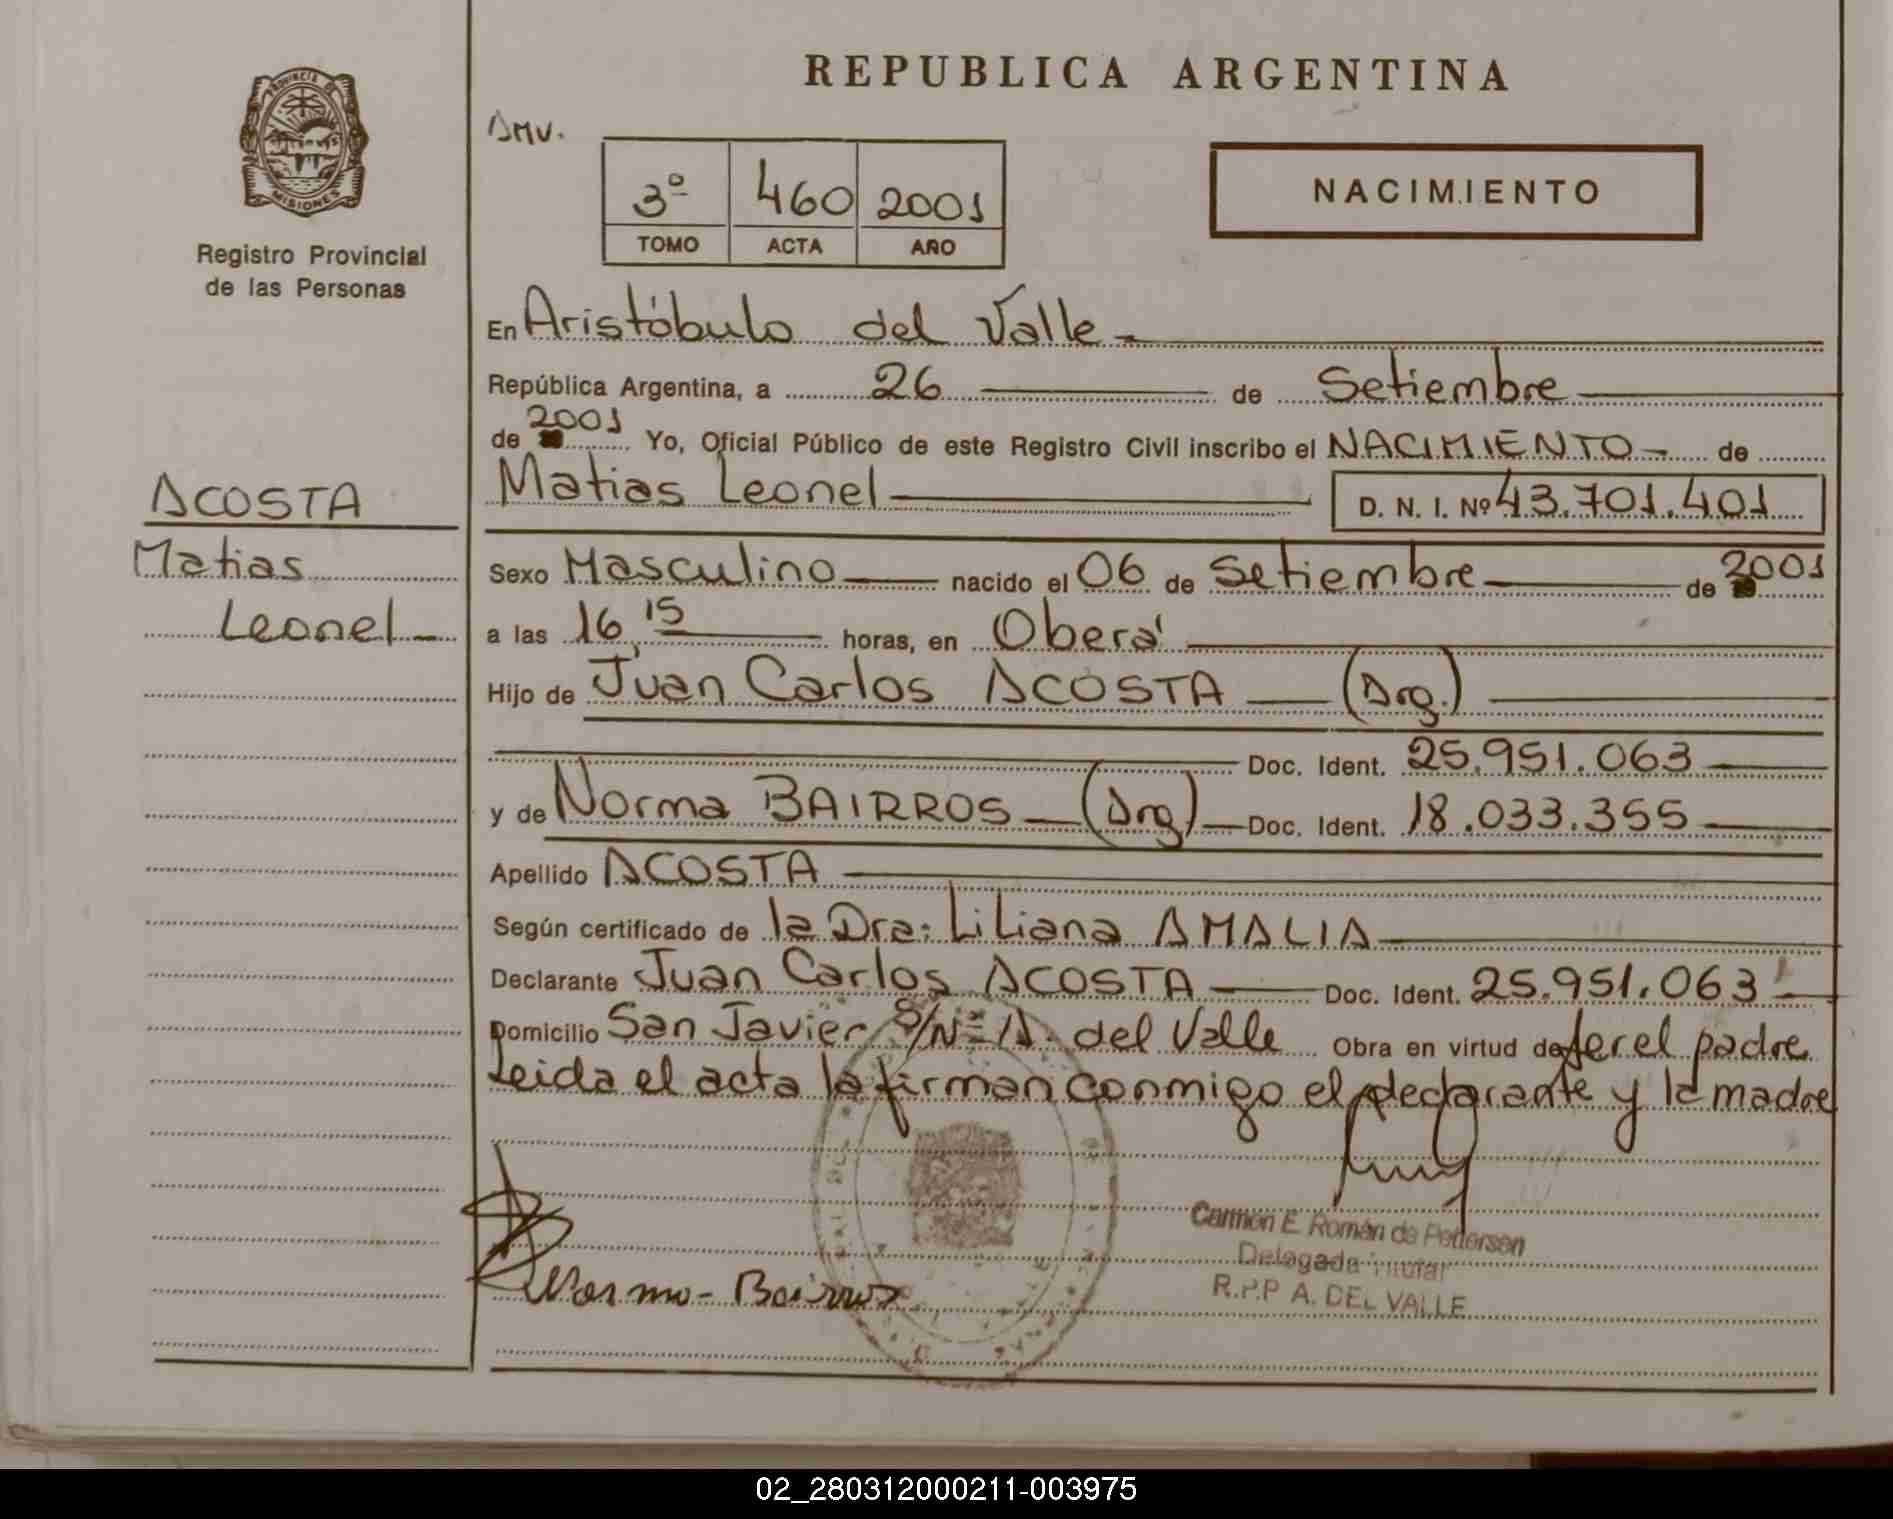 REPUBLICA ARGENTINA
PROVINCIA DE
MISIONES
Registro Provincial
de las Personas
AMV.
3º 460 2001
TOMO ACTA AÑO
NACIMIENTO
En Aristóbulo del Valle
República Argentina, a 26 de Setiembre
de 2001 Yo, Oficial Público de este Registro Civil inscribo el NACIMIENTO de
Matias Leonel D. N. I. Nº 43.701.401
ACOSTA
Matias
Leonel
Sexo Masculino nacido el 06 de Setiembre de 2001
a las 16,15 horas, en Oberá
Hijo de Juan Carlos ACOSTA (Arg.)
Doc. Ident. 25.951.063
y de Norma BAIRROS (Arg) Doc. Ident. 18.033.355
Apellido ACOSTA
Según certificado de la Dra: Liliana AMALIA
Declarante Juan Carlos ACOSTA Doc. Ident. 25.951.063
Domicilio San Javier S/Nº A. del Valle Obra en virtud de ser el padre
Leida el acta la firman conmigo el declarante y la madre
Norma - Bairros
Carmen E. Román de Pettersen
Delegada Titular
R.P.P A. DEL VALLE
02_280312000211-003975